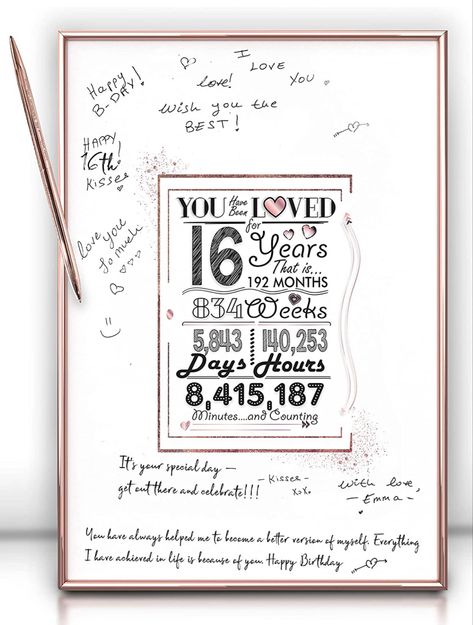 I
LOVE
YOU
Happy
B-DAY!
love!
Wish you the
BEST!
HAPPY
16th!
Kisses
love you
so much
YOU Have Been LOVED
for
16 Years
That is...
192 MONTHS
834 Weeks
5,843 140,253
Days Hours
8,415,187
Minutes....and Counting
It's your special day –
get out there and celebrate!!!
- Kisses -
xoxo
With love,
- Emma -
You have always helped me to become a better version of myself. Everything
I have achieved in life is because of you. Happy Birthday